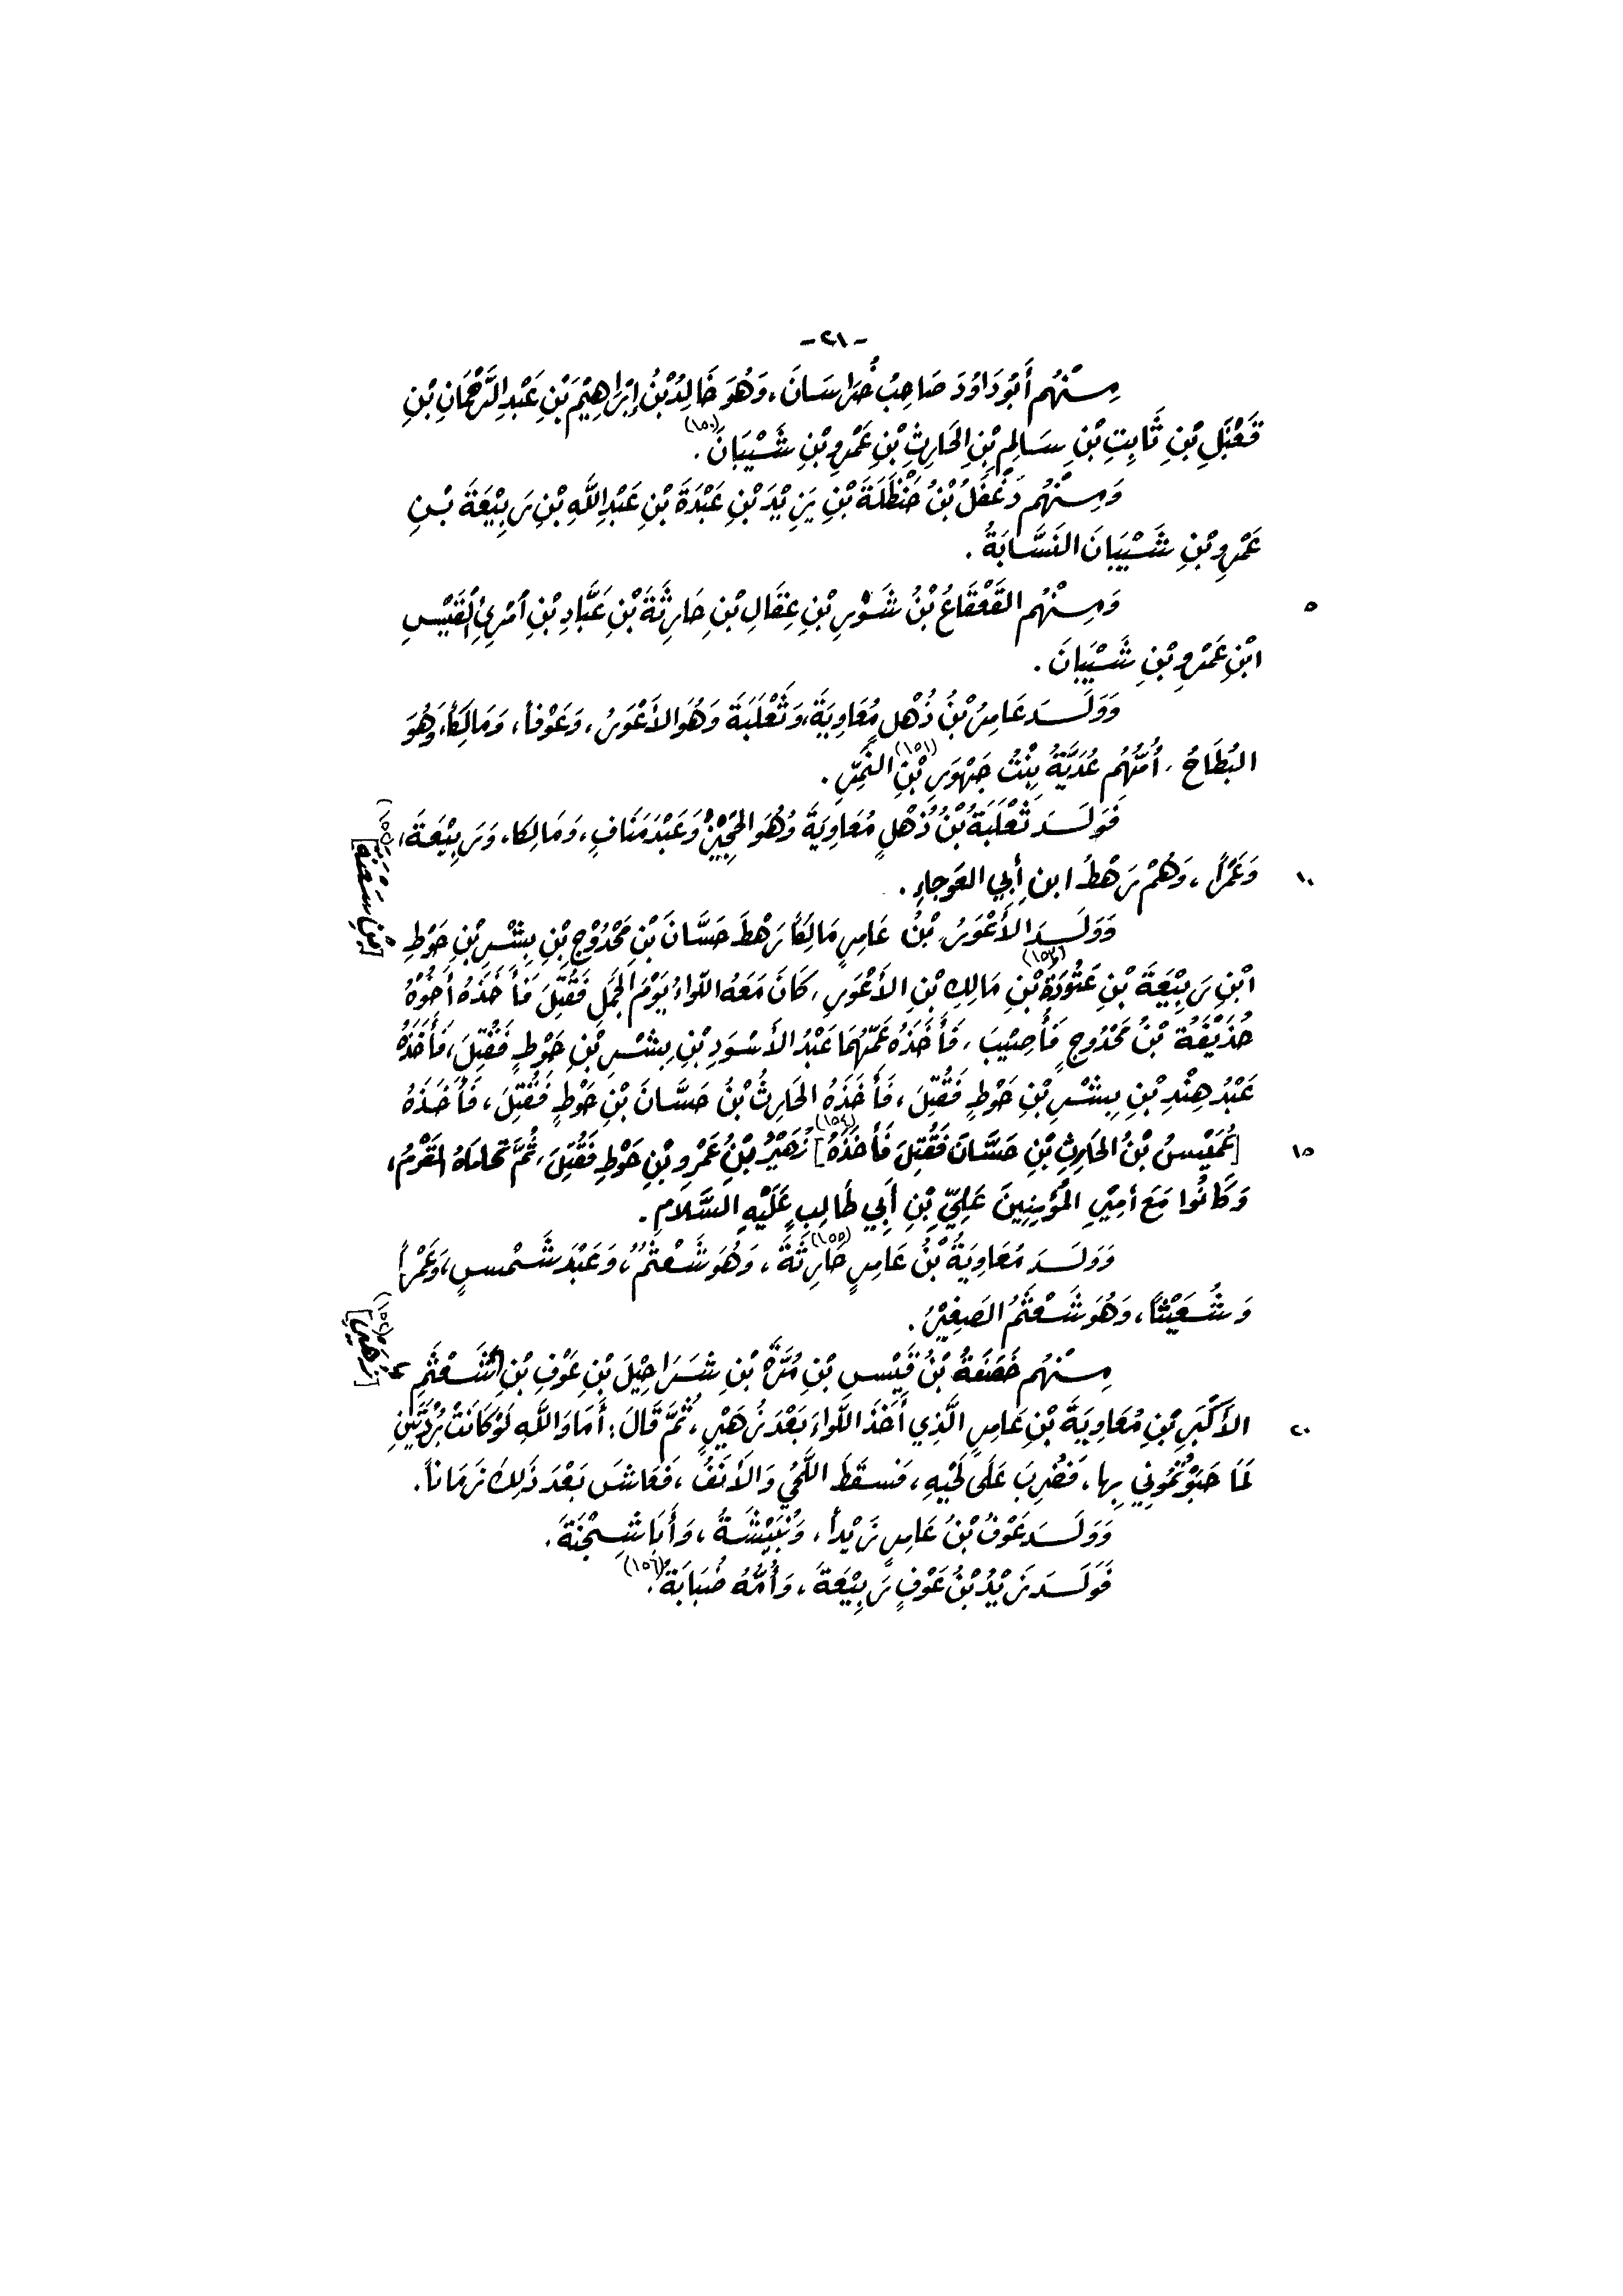 -٢١-
مِنْهُم أَبُو دَاوُدَ صَاحِبُ خُرَاسَانَ، وَهُوَ خَالِدُ بْنُ إِبْرَاهِيْمَ بْنِ عَبْدِ الرَّحْمَانِ بْنِ
قَعْبَلِ بْنِ ثَابِتِ بْنِ سَالِمِ بْنِ الحَارِثِ بْنِ عَمْرِو بْنِ شَيْبَانَ(١٥٠).
وَمِنْهُم دَغْفَلُ بْنُ حَنْظَلَةَ بْنِ يَزِيْدَ بْنِ عَبْدَةَ بْنِ عَبْدِ اللَّهِ بْنِ رَبِيْعَةَ بْنِ
عَمْرِو بْنِ شَيْبَانَ النَسَّابَةُ.
٥ وَمِنْهُم القَعْقَاعُ بْنُ شَوْرِ بْنِ عِقَالِ بْنِ حَارِثَةَ بْنِ عَبَّادِ بْنِ امْرِئِ القَيْسِ
ابْنِ عَمْرِو بْنِ شَيْبَانَ.
وَوَلَدَ عَامِرُ بْنُ ذُهْلٍ مُعَاوِيَةَ، وَثَعْلَبَةَ وَهُوَ الأَعْوَرُ، وَعَوْفاً، وَمَالِكاً، وَهُوَ
البُطَاحُ، أُمُّهُم عُدَيَّةُ بِنْتُ جَهْوَرِ(١٥١) بْنِ النَّمِرِ.
فَوَلَدَ ثَعْلَبَةُ بْنُ ذُهْلٍ مُعَاوِيَةَ وَهُوَ الحَجِيْنُ وَعَبْدَ مَنَافٍ، وَمَالِكا، وَرَبِيْعَةَ،
١٠ وَعَمْراً، وَهُمْ رَهْطُ ابنِ أَبِي العَوجاءِ.
وَوَلَدَ الأَعْوَرُ بْنُ عَامِرٍ مَالِكاً رَهْطَ حَسَّانَ بْنِ مَحْدُوْجِ بْنِ بِشْرِ بْنِ حَوْطِ [بْنِ سَعْنَةَ](١٥٢)
ابْنِ رَبِيْعَةَ بْنِ عَتُودَةَ(١٥٣) بْنِ مَالِكِ بْنِ الأَعْوَرِ، كَانَ مَعَهُ اللِّوَاءُ يَوْمَ الجَمَلِ فَقُتِلَ فَأَخَذَهُ أَخُوْهُ
حُذَيْفَةُ بْنُ مَحْدُوجٍ فَأُصِيْبَ، فَأَخَذَهُ عَمُّهُمَا عَبْدُ الأَسْوَدِ بْنِ بِشْرِ بْنِ حَوْطٍ فَقُتِلَ، فَأَخَذَهُ
عَبْدُ هِنْدِ بْنِ بِشْرِ بْنِ حَوْطٍ فَقُتِلَ، فَأَخَذَهُ الحَارِثُ بْنُ حَسَّانَ بْنِ حَوْطٍ فَقُتِلَ، فَأَخَذَهُ
١٥ [عُمَيْسُ بْنُ الحَارِثِ بْنِ حَسَّانَ فَقُتِلَ فَأَخَذَهُ](١٥٤) زُهَيْرُ بْنُ عَمْرِو بْنِ حَوْطٍ فَقُتِلَ، ثُمَّ تحاماهُ القَوْمُ،
وَكَانُوا مَعَ أمِيْرِ المُؤْمِنِينَ عَلِيِّ بْنِ أَبِي طَالِبٍ عَلَيْهِ السَّلَامِ.
وَوَلَدَ مُعَاوِيَةُ بْنُ عَامِرٍ حَارِثَةَ(١٥٥)، وَهُوَ شَعْثَمُ، وَعَبْدَ شَمْسٍ، وَعَمْراً
وَشُعَيْثاً، وَهُوَ شَعْثَمُ الصَغِيْرُ.
مِنْهُم خَصَفَةُ بْنُ قَيْسِ بْنِ مُرَّةَ بْنِ شَرَاحِيْلَ بْنِ عَوْفِ بْنِ الشَّعْثَمِ
٢٠ الأَكْبَرِ بْنِ مُعَاوِيَةَ بْنِ عَامِرٍ الَّذِي أَخَذَ اللِّوَاءَ بَعْدَ زُهَيْرٍ، ثُمَّ قَالَ: أَمَا وَاللَّهِ لَوْ كَانَتْ بُرْدَتَيْنِ
لَمَا حَبَوْتُمُونِي بِها، فَضُرِبَ عَلَى لَحْيِهِ، فَسقَطَ اللَّحْيُ وَالأَنَفُ، فَعَاشَ بَعْدَ ذَلِكَ زَمَاناً.
وَوَلَدَ عَوْفُ بْنُ عَامِرٍ زَيْداً، وَنُبَيْشَةَ، وَأَبَا شِجْنَةَ.
فَوَلَدَ زَيْدُ بْنُ عَوْفٍ رَبِيْعَةَ، وَأُمُّهُ ضُبَابَةُ(١٥٦).